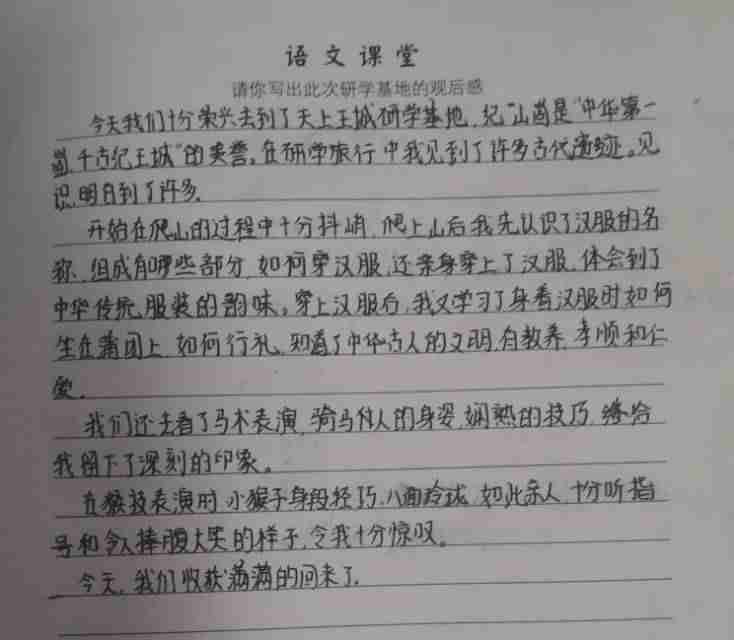 语文课堂
请你写出此次研学基地的观后感
今天我们十分荣兴去到了天上王城研学基地,纪山崮是“中华第一
崮,千古纪王城”的美誉。在研学旅行中我见到了许多古代遗迹。见
识,明白到了许多,
开始在爬山的过程中十分抖峭,爬上山后我先认识了汉服的名
称,组成有哪些部分,如何穿汉服,还亲身穿上了汉服,体会到了
中华传统服装的韵味。穿上汉服后,我又学习了身着汉服时如何
坐在蒲团上,如何行礼,知道了中华古人的文明,有教养,孝顺和仁
爱.
我们还去看了马术表演,骑马人的身姿,娴熟的技巧,给
我留下了深刻的印象。
在猴技表演时,小猴子身段轻巧,八面玲珑,如此亲人,十分听指
号和令人捧腹大笑的样子,令我十分惊叹。
今天,我们收获满满的回来了.